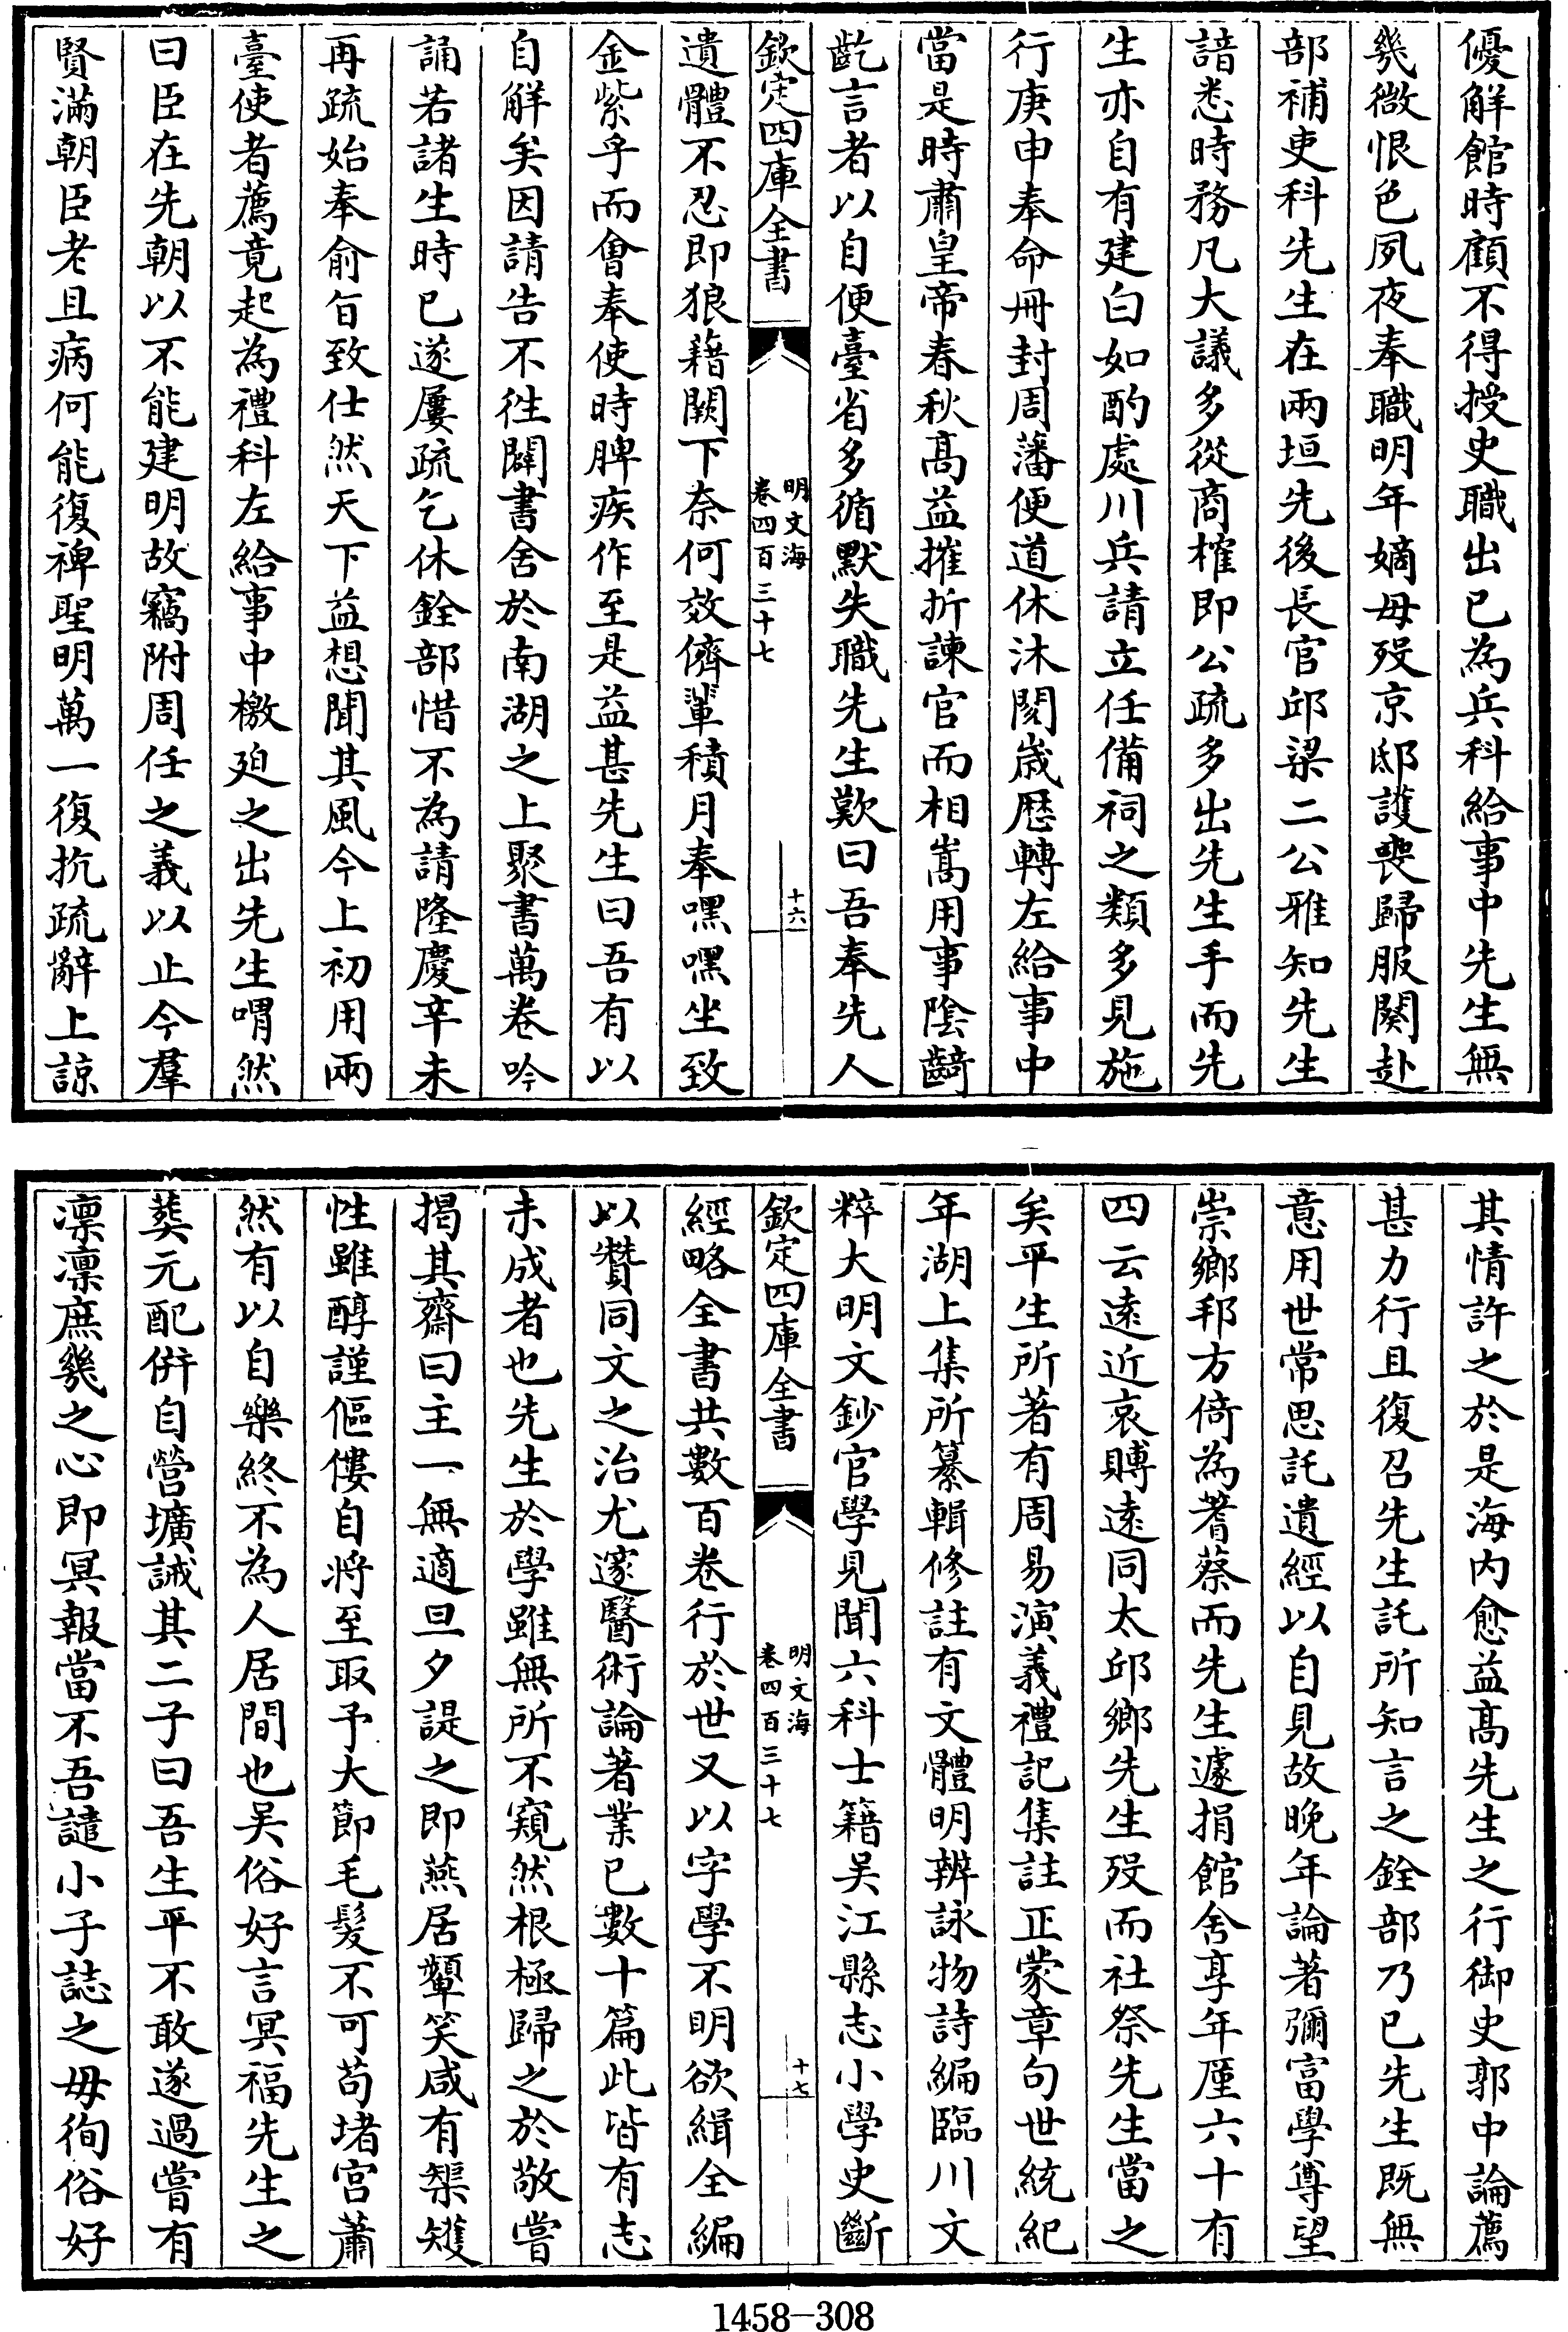 優解館時顧不得授史職出已為兵科給事中先生無
幾微恨色夙夜奉職明年嫡毋歿京邸護喪歸服闋赴
部補吏科先生在兩垣先後長官邱梁二公雅知先生
諳悉時務凡大議多從商榷即公疏多出先生手而先
生亦自有建白如酌處川兵請立任備祠之類多見施
行庚申奉命冊封周藩便道休沐閱歲歷轉左給事中
當是時肅皇帝春秋髙益摧折諫官而相嵩用事陰齮
齕言者以自便臺省多循默失職先生歎曰吾奉先人
欽定四庫全書
明文海
卷四百三十七
十六
遺體不忍即狼藉闕下奈何效儕輩積月奉嘿嘿坐致
金紫乎而㑹奉使時脾疾作至是益甚先生曰吾有以
自解矣因請告不徃闢書舍於南湖之上聚書萬卷吟
誦若諸生時已遂屢疏乞休銓部惜不為請隆慶辛未
再疏始奉俞旨致仕然天下益想聞其風今上初用兩
臺使者薦竟起為禮科左給事中檄廹之出先生喟然
曰臣在先朝以不能建明故竊附周任之義以止今羣
賢滿朝臣老且病何能復禆聖明萬一復抗疏辭上諒
其情許之於是海内愈益髙先生之行御史郭中論薦
甚力行且復召先生託所知言之銓部乃已先生既無
意用世常思託遺經以自見故晚年論著彌富學尊望
崇鄉邦方倚為蓍蔡而先生遽捐館舍享年厪六十有
四云逺近哀賻逺同太邱鄉先生歿而社祭先生當之
矣平生所著有周易演義禮記集註正蒙章句世統紀
年湖上集所纂輯修註有文體明辨詠物詩編臨川文
粹大明文鈔官學見聞六科士籍吴江縣志小學史斷
欽定四庫全書
明文海
卷四百三十七
十七
經略全書共數百卷行於世又以字學不明欲緝全編
以贊同文之治尤邃醫術論著業已數十篇此皆有志
未成者也先生於學雖無所不窺然根極歸之於敬嘗
揭其齋曰主一無適旦夕諟之即燕居顰笑咸有榘矱
性雖醇謹傴僂自将至取予大節毛髮不可苟堵宫蕭
然有以自樂終不為人居間也吴俗好言冥福先生之
葬元配併自營壙誡其二子曰吾生平不敢遂過嘗有
凛凛庶幾之心即冥報當不吾譴小子誌之毋徇俗好
1458—308